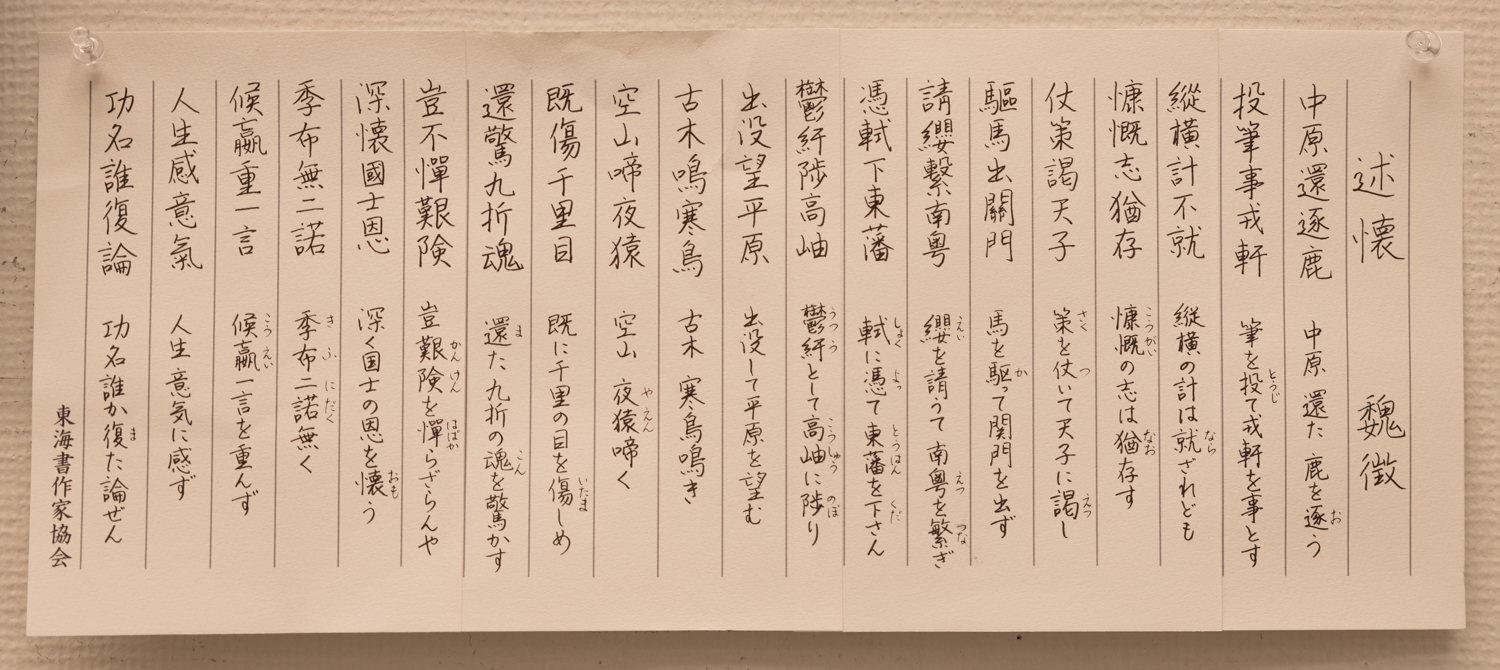 述懐 魏徴
中原還逐鹿 中原還た鹿を逐う
投筆事戎軒 筆を投て戎軒を事とす
縦横計不就 縦横の計は就ざれども
慷慨志猶存 慷慨の志は猶存す
仗策謁天子 策を仗いて天子に謁し
驅馬出關門 馬を駆って関門を出ず
請纓繫南粤 纓を請うて南粤を繋ぎ
憑軾下東藩 軾に憑て東藩を下さん
鬱紆陟高岫 鬱紆として高岫に陟り
出没望平原 出没して平原を望む
古木鳴寒鳥 古木 寒鳥鳴き
空山啼夜猿 空山 夜猿啼く
既傷千里目 既に千里の目を傷しめ
還驚九折魂 還た九折の魂を驚かす
豈不憚艱険 豈艱険を憚らざらんや
深懐國士恩 深く国士の恩を懐う
季布無二諾 季布二諾無く
候嬴重一言 候嬴一言を重んず
人生感意氣 人生意気に感ず
功名誰復論 功名誰か復た論ぜん
東海書作家協会